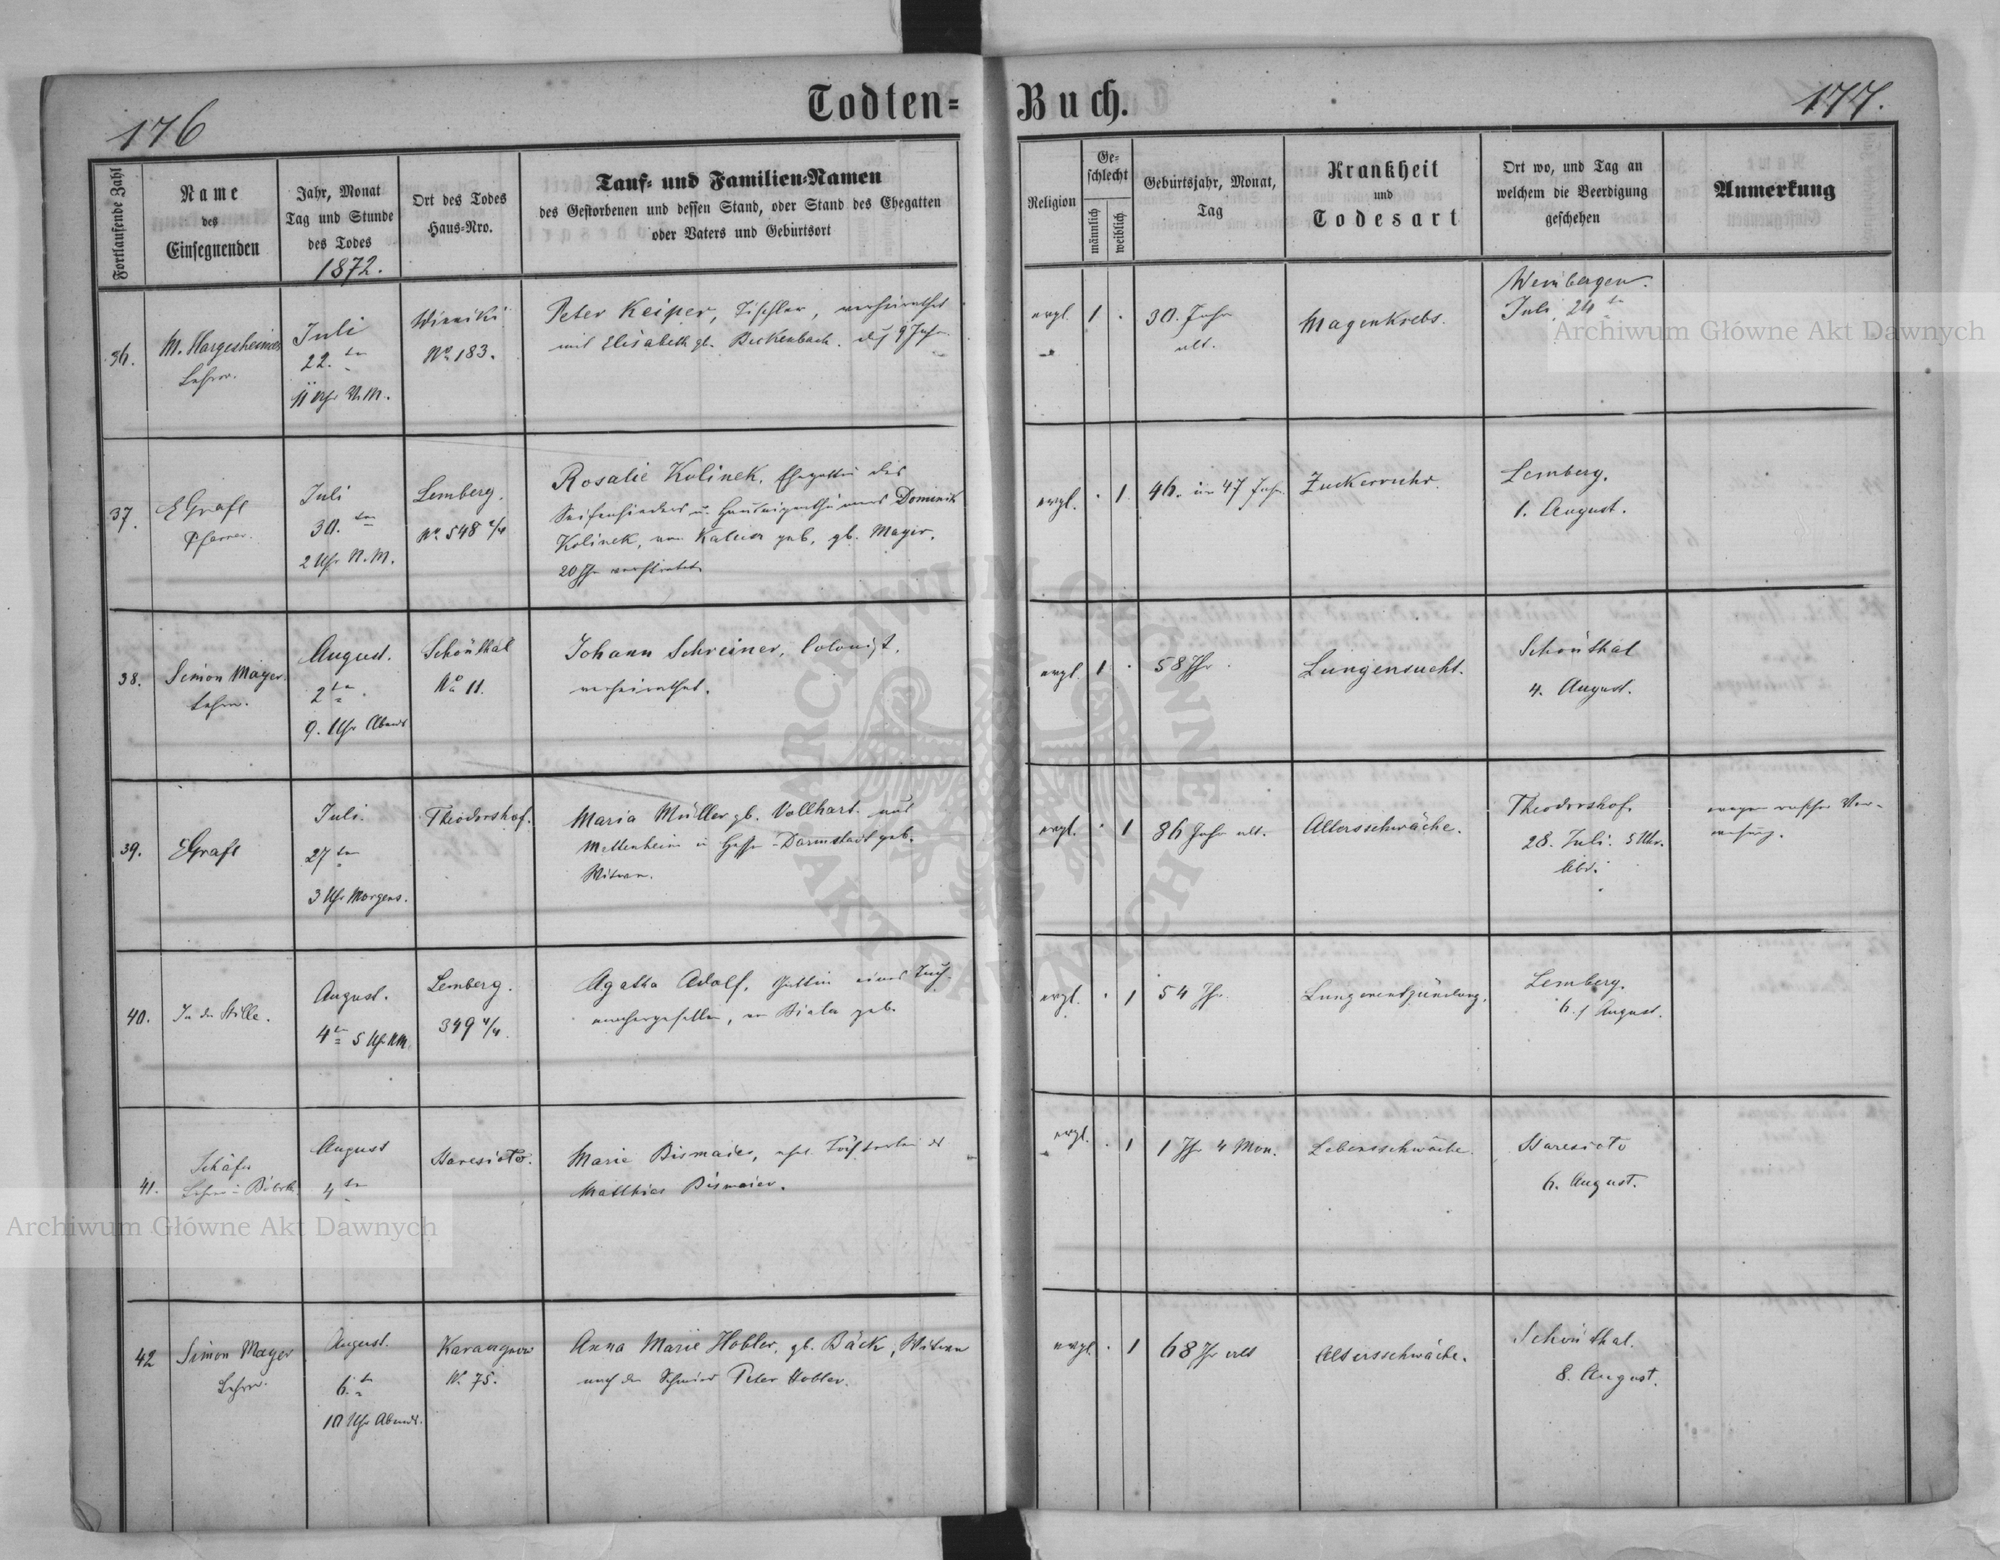 176
Todten=
Buch.
177.
Fortlaufende Zahl
Name
des
Einsegnenden
Jahr, Monat
Tag und Stunde
des Todes
1872.
Ort des Todes
Haus=Nro.
Tauf= und Familien=Namen
des Gestorbenen und dessen Stand, oder Stand des Ehegatten
oder Vaters und Geburtsort
Religion
Ge=
schlecht
männlich
weiblich
Geburtsjahr, Monat,
Tag
Krankheit
und
Todesart
Ort wo, und Tag an
welchem die Beerdigung
geschehen
Anmerkung
36.
M. Hargesheimer
Lehrer.
Juli
22. ten
11 Uhr N.M.
Winniki
No 183.
Peter Keiper, Tischler, verheirathet
mit Elisabeth gb. Beckenbach.
evgl.
1
30. Jahr
alt.
Magenkrebs.
Weinbergen.
Juli 24 ten
37.
EGrafl
Pfarrer.
Juli
30. ten
2 Uhr N.M.
Lemberg.
No 548 2/4
Rosalie Kolinek, Ehegattin des
Seifensieders u. Hauseigenthümers Dominik
Kolinek, von Kalusz geb, gb. Mayer.
20 Jhr verheirathet
evgl.
1
46. in 47 Jahr.
Zuckerruhr.
Lemberg.
1. August.
38.
Simon Mayer
Lehrer.
August.
2 ten
9. Uhr Abends
Schönthal
No 11.
Johann Schreiner, Colonist,
verheirathet.
evgl.
1
58 Jhr
Lungensucht.
Schönthal
4. August.
39.
EGrafl
Juli.
27 ten
3 Uhr Morgens.
Theodorshof.
Maria Müller gb. Vollhart. aus
Mettenheim in Hessen-Darmstadt geb.
Witwe.
evgl.
1
86 Jahr alt.
Altersschwäche.
Theodorshof.
28. Juli. 5 Uhr.
Abd.
wegen rascher Ver-
wesung.
40.
In der Stille.
August.
4 te 5 Uhr NM
Lemberg.
349 4/4.
Agatha Adolf, Gattin eines Tuch-
machergesellen, von Biala geb.
evgl.
1
54 Jhr.
Lungenentzündung.
Lemberg.
6. / August.
41.
Schäfer
Lehrer in
August
4 ten
Maresieto.
Marie Bismaier, ehel. Töchterlein des
Matthias Bismaier.
evgl.
1
1 Jhr 4 Mon.
Lebensschwäche.
6. August.
42
Simon Mayer
Lehrer.
August.
6. ten
10 Uhr Abends.
No 75.
Anna Marie Hobler, gb. Bäck, Witwe
nach dem Schmied Peter Hobler.
evgl.
1
68 Jhr alt
Altersschwäche.
Schönthal.
8. August.
Archiwum Główne Akt Dawnych
Archiwum Główne Akt Dawnych
ARCHIWUM GŁÓWNE
AKT DAWNYCH